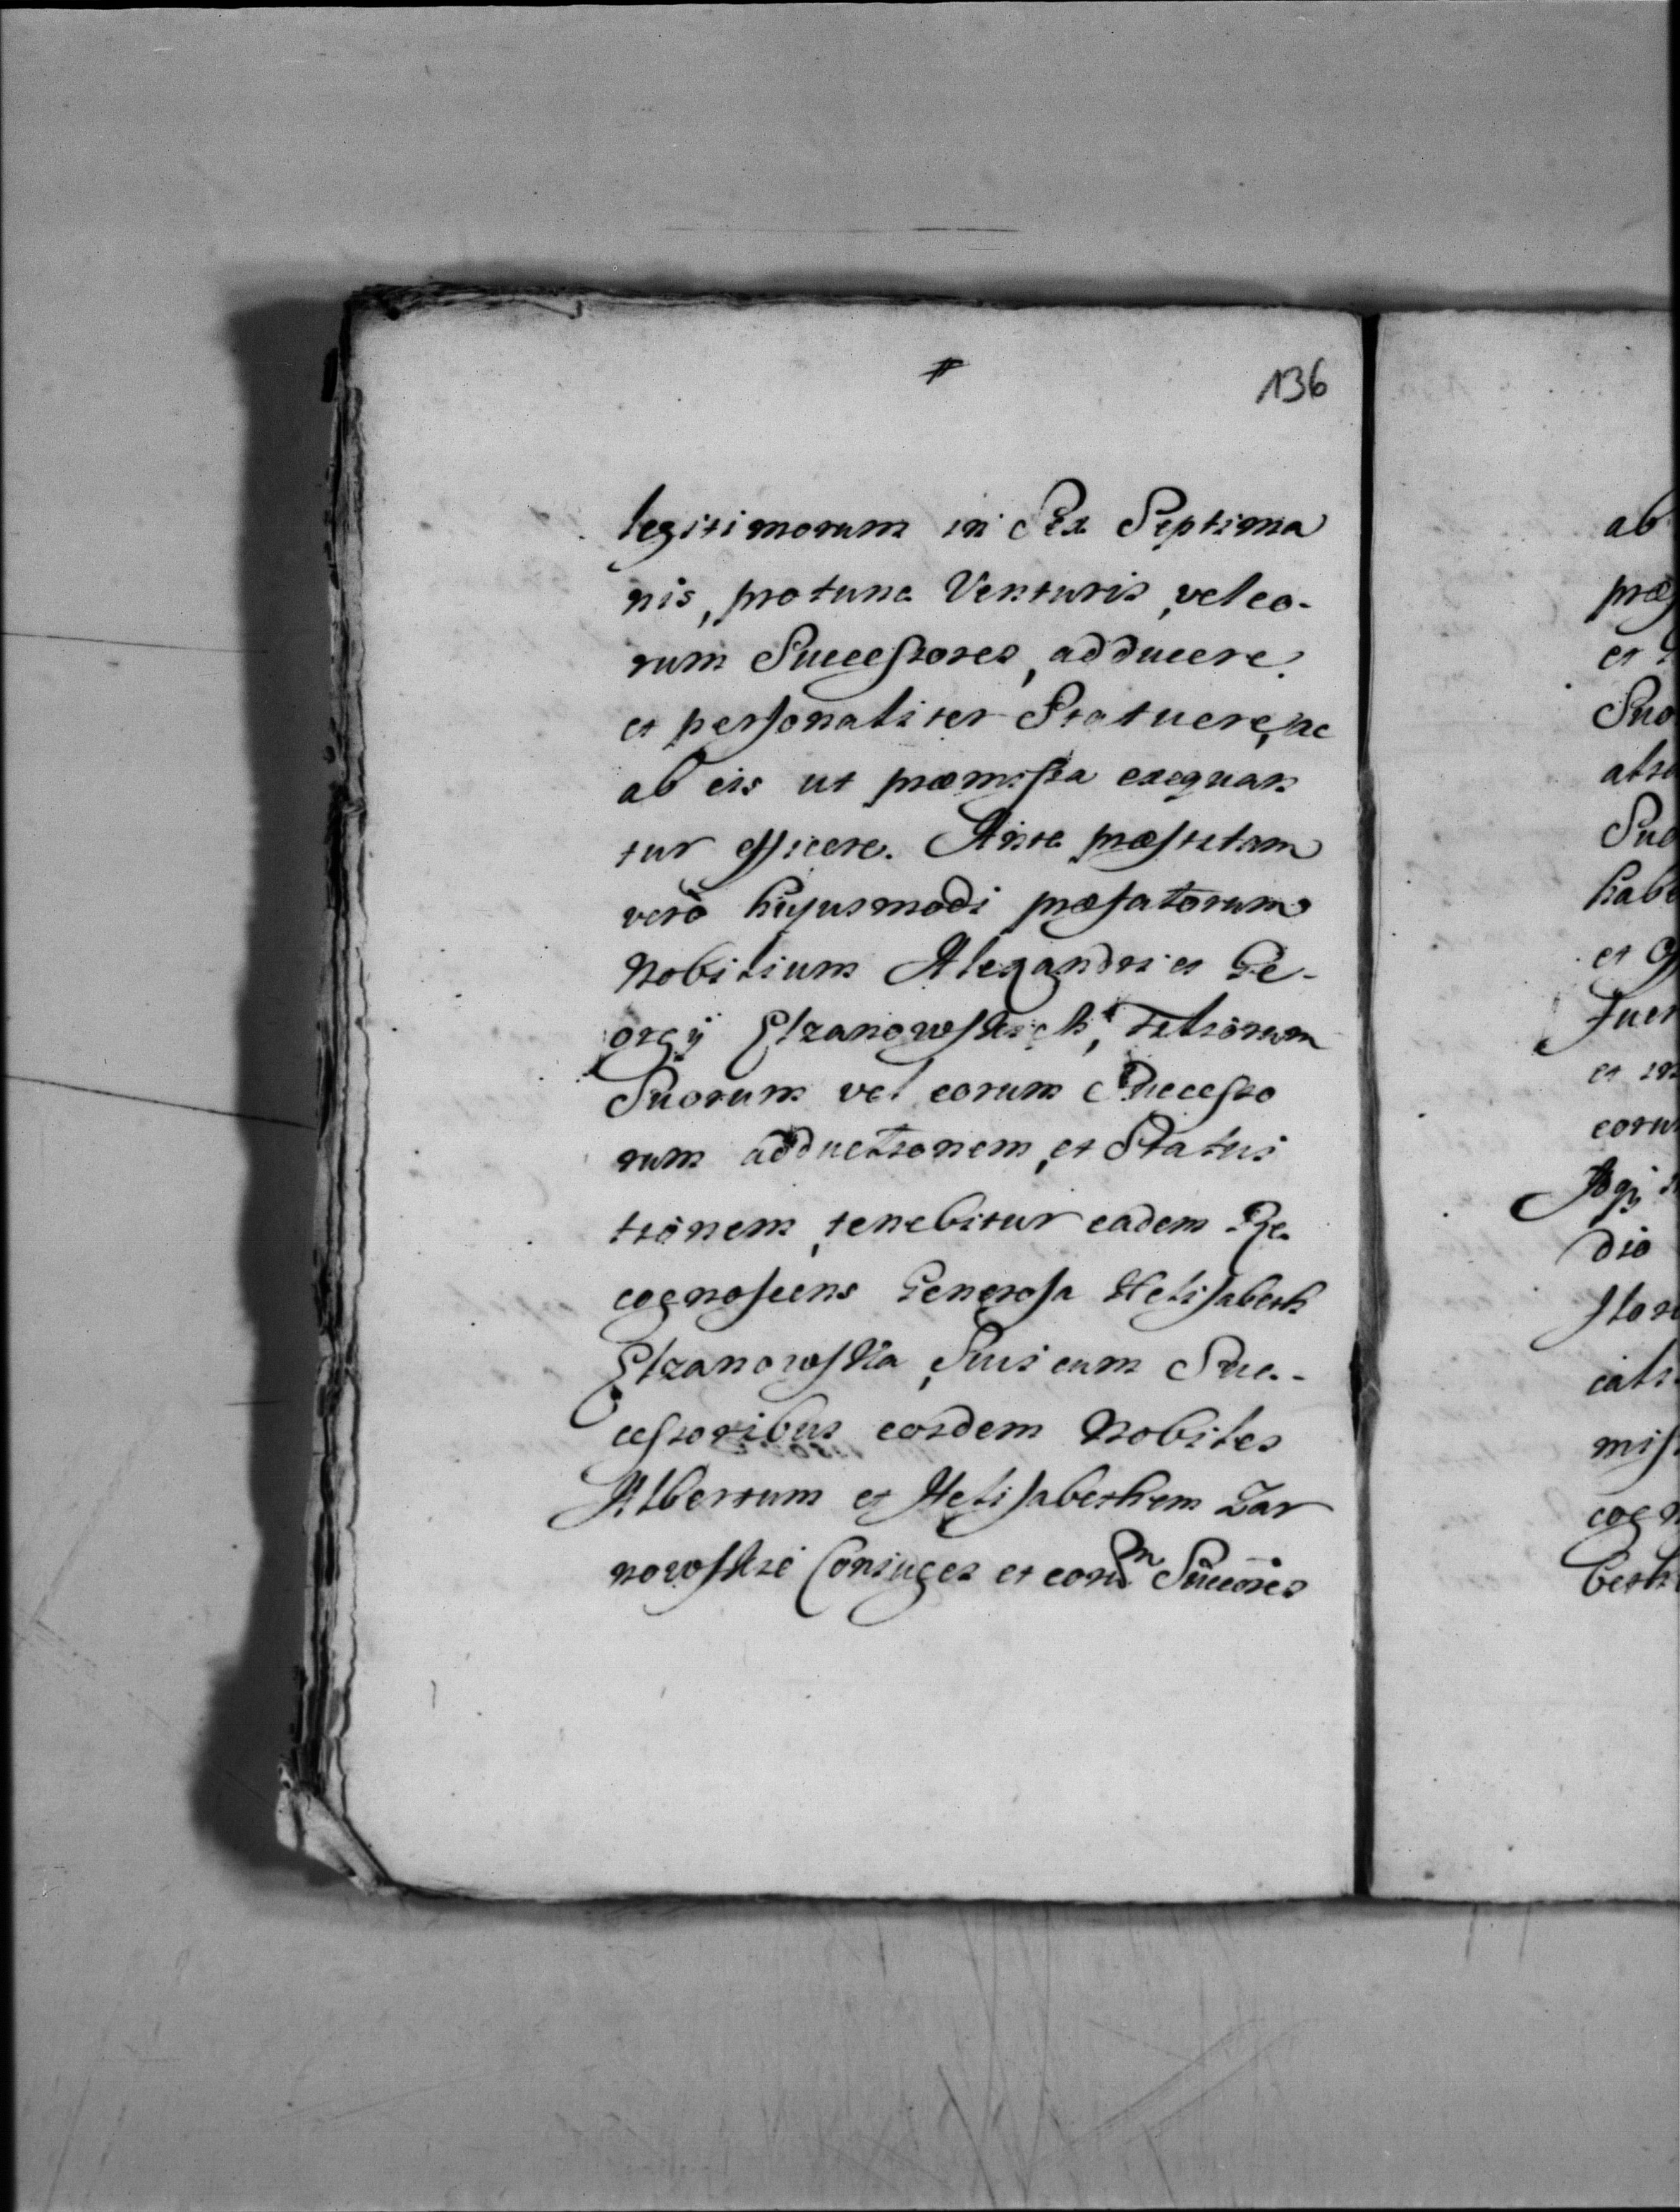 136
legitimorum in Sex Septima
nis, protunc Venturis, vel eo-
rum Successores, adducere
et personaliter Statuere, ac
ab eis ut præmissa exequan
tur efficere. Ante præstitam
verò hujusmodi præfatorum
Nobilium Alexandri et Ge-
orgÿ Elzanowskich, Filiorum
Suorum vel eorum Successo
rum adductionem, et Statui
tionem, tenebitur eadem Re-
cognoscens Generosa Helisabeth
Elzanowska, Suis cum Suc-
cessoribus eosdem Nobiles
Albertum et Helisabethem Zar
nowskie Coniuges et eorum Succores
ab
præ
et
Suo
Suo
habe
et
fuer
et in
eorum
dio
cogn
beth